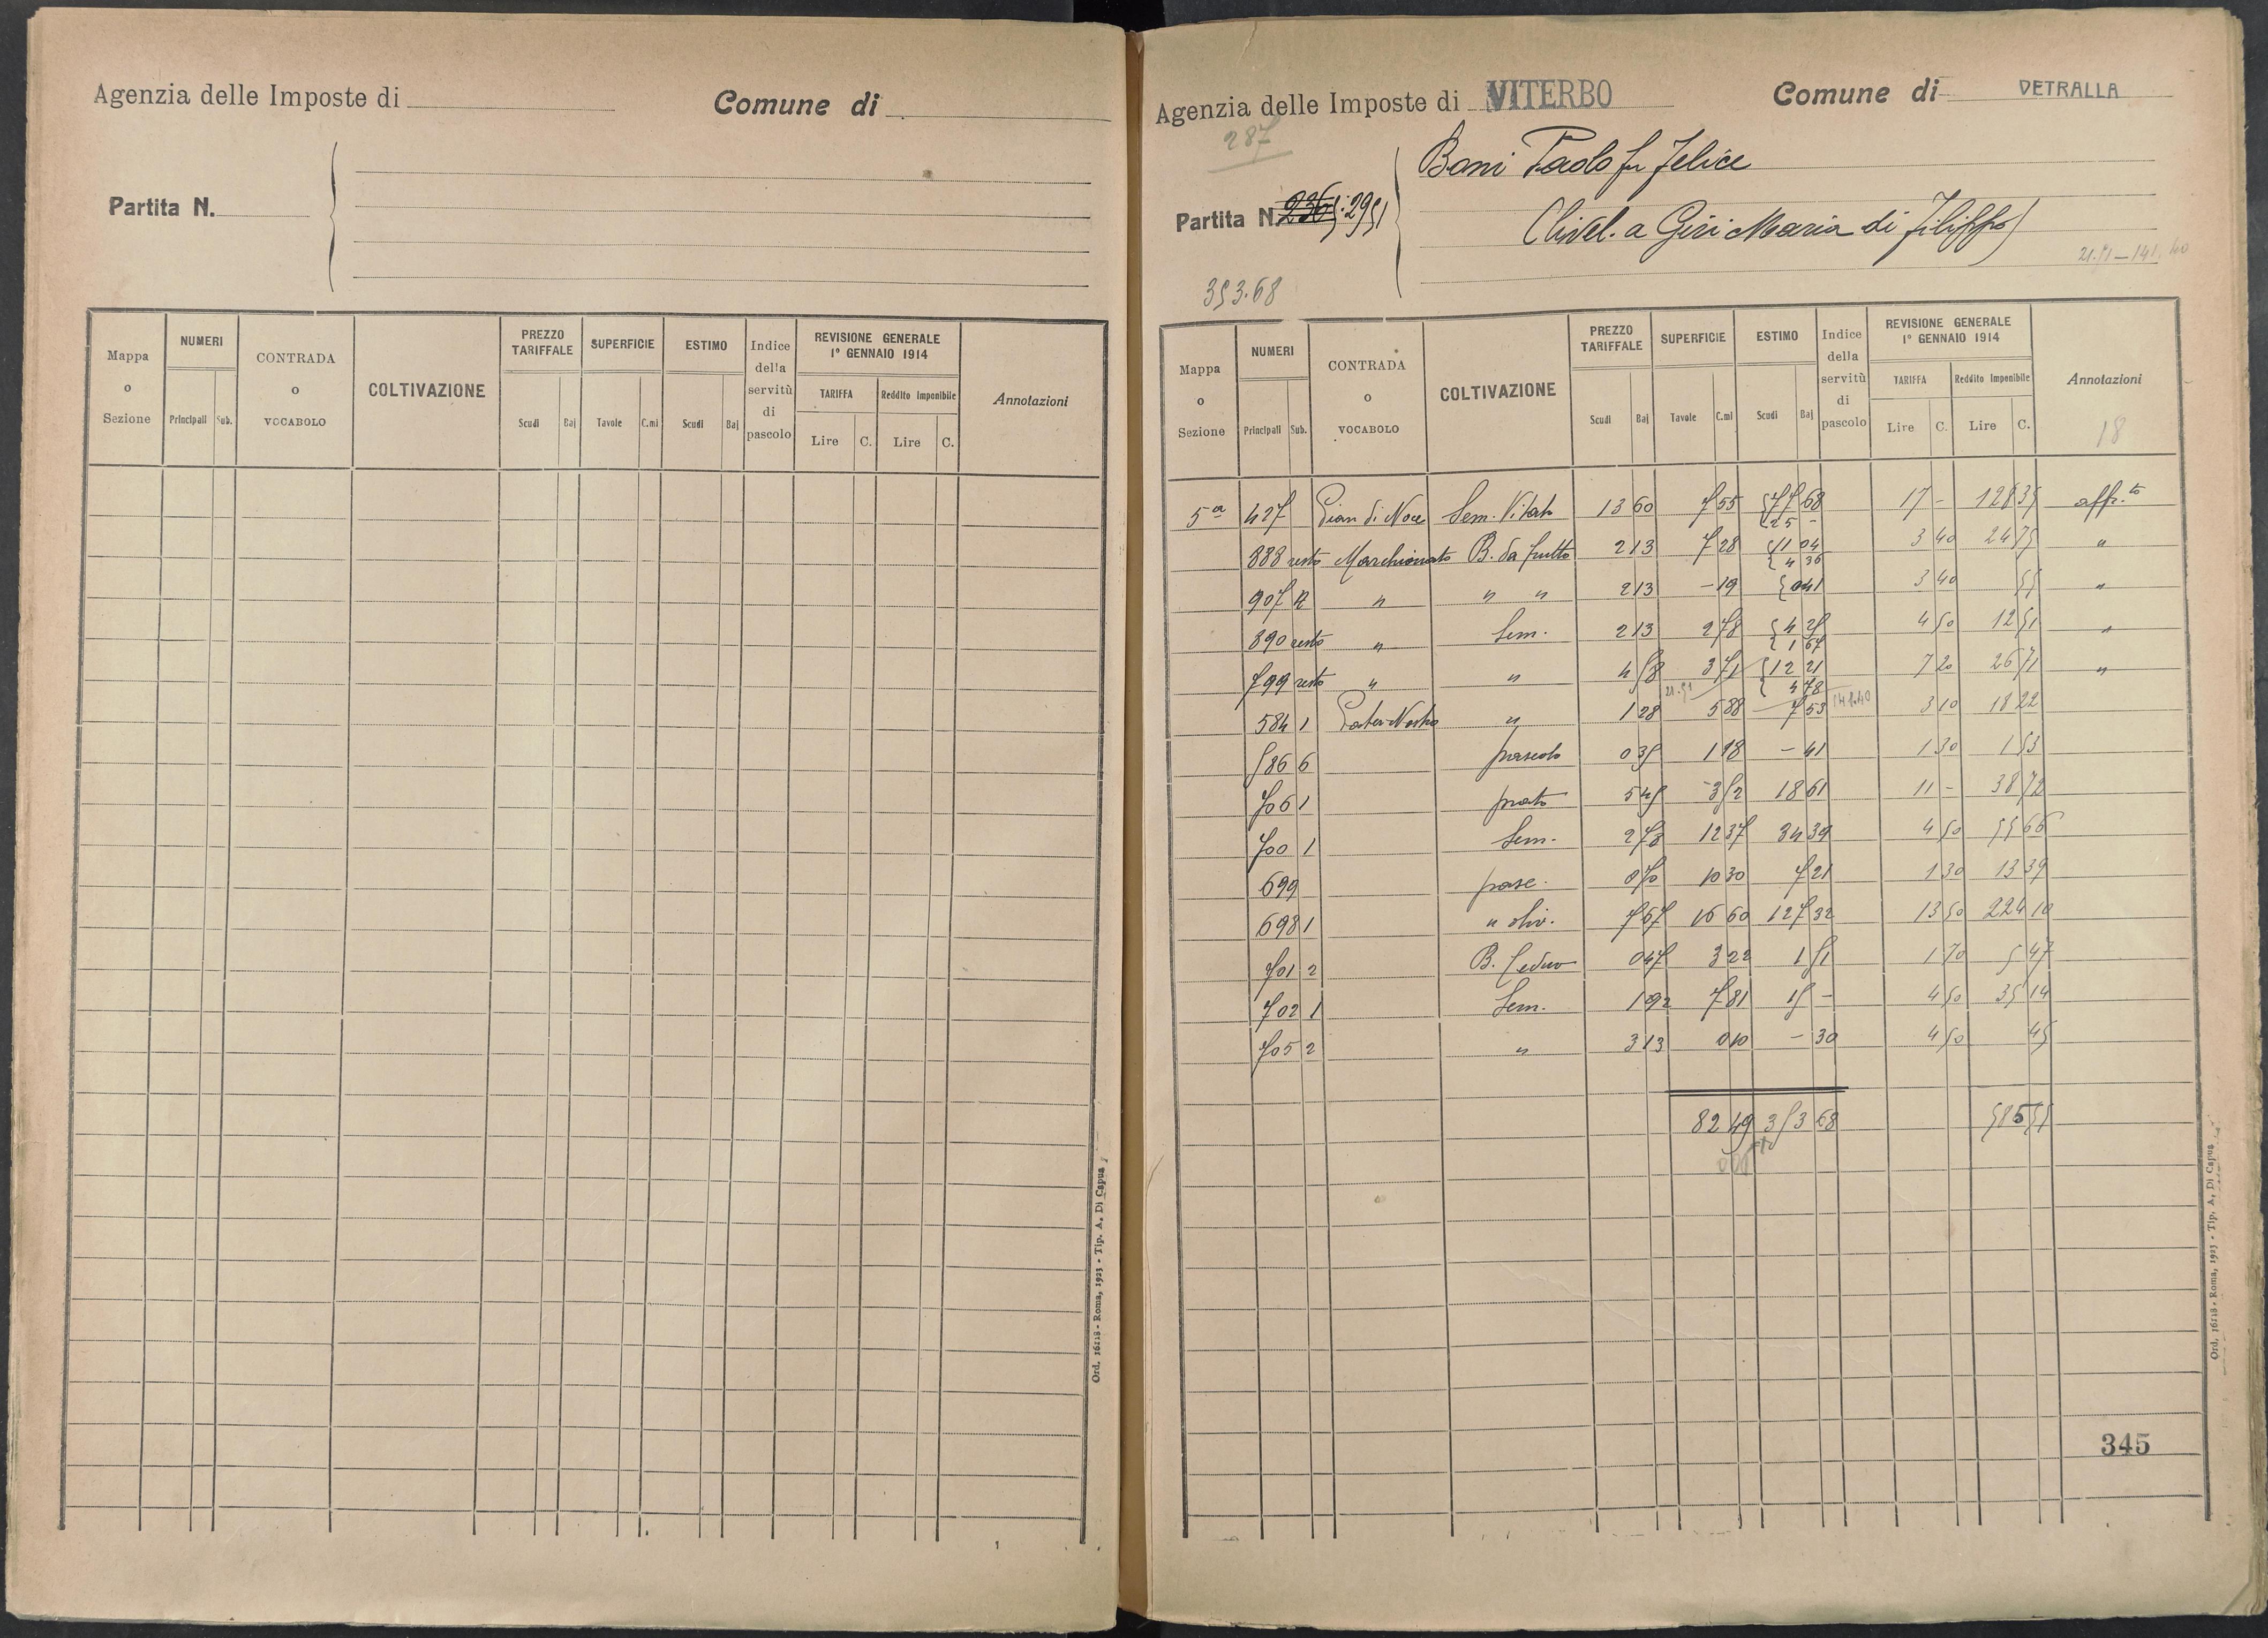 Agenzia delle Imposte di
Comune di
Partita N.
Mappa o Sezione
NUMERI
Principali Sub.
CONTRADA o VOCABOLO
COLTIVAZIONE
PREZZO TARIFFALE
Scudi Baj
SUPERFICIE
Tavole C.mi
ESTIMO
Scudi Baj
Indice della servitù di pascolo
REVISIONE GENERALE
1° GENNAIO 1914
TARIFFA
Lire C.
Reddito Imponibile
Lire C.
Annotazioni
Ord. 16118 - Roma, 1923 - Tip. A. Di Capua
Agenzia delle Imposte di VITERBO
Comune di VETRALLA
287
Boni Paolo fu Felice
Partita N. 2951
(livel. a Giri Maria di Filippo)
21.51 – 141.40
353.68
Mappa o Sezione
NUMERI
Principali Sub.
CONTRADA o VOCABOLO
COLTIVAZIONE
PREZZO TARIFFALE
Scudi Baj
SUPERFICIE
Tavole C.mi
ESTIMO
Scudi Baj
Indice della servitù di pascolo
REVISIONE GENERALE
1° GENNAIO 1914
TARIFFA
Lire C.
Reddito Imponibile
Lire C.
Annotazioni
18
5a 427 Pian di Noce Sem. Vitato 13 60 7 55 77 68 17 - 128 35 affr.to
25 -
888 resto Marchionato B. da frutto 2 13 7 28 11 04 3 40 24 75 "
4 36
907 R " " " 2 13 - 19 0 41 3 40 55 "
890 resto " Sem. 2 13 2 78 4 25 4 50 12 51 "
1 67
799 resto " " 4 58 3 71 12 21 7 20 26 71 "
4 78
21.51 141.40
584 1 Pater Nostro " 1 28 5 88 7 53 3 10 18 22
586 6 pascolo 0 35 1 18 - 41 1 30 1 53
706 1 prato 5 45 3 52 18 61 11 - 38 72
700 1 Sem. 2 78 12 37 34 39 4 50 55 66
699 pasc. 0 70 10 30 7 21 1 30 13 39
698 1 " oliv. 7 67 16 60 127 32 13 50 224 10
701 2 B. Ceduo 0 47 3 22 1 51 1 70 5 47
702 1 Sem. 1 92 7 81 15 - 4 50 35 14
705 2 " 3 13 0 10 - 30 4 50 45
82 49 353 68 585 55
345
Ord. 16118 - Roma, 1923 - Tip. A. Di Capua